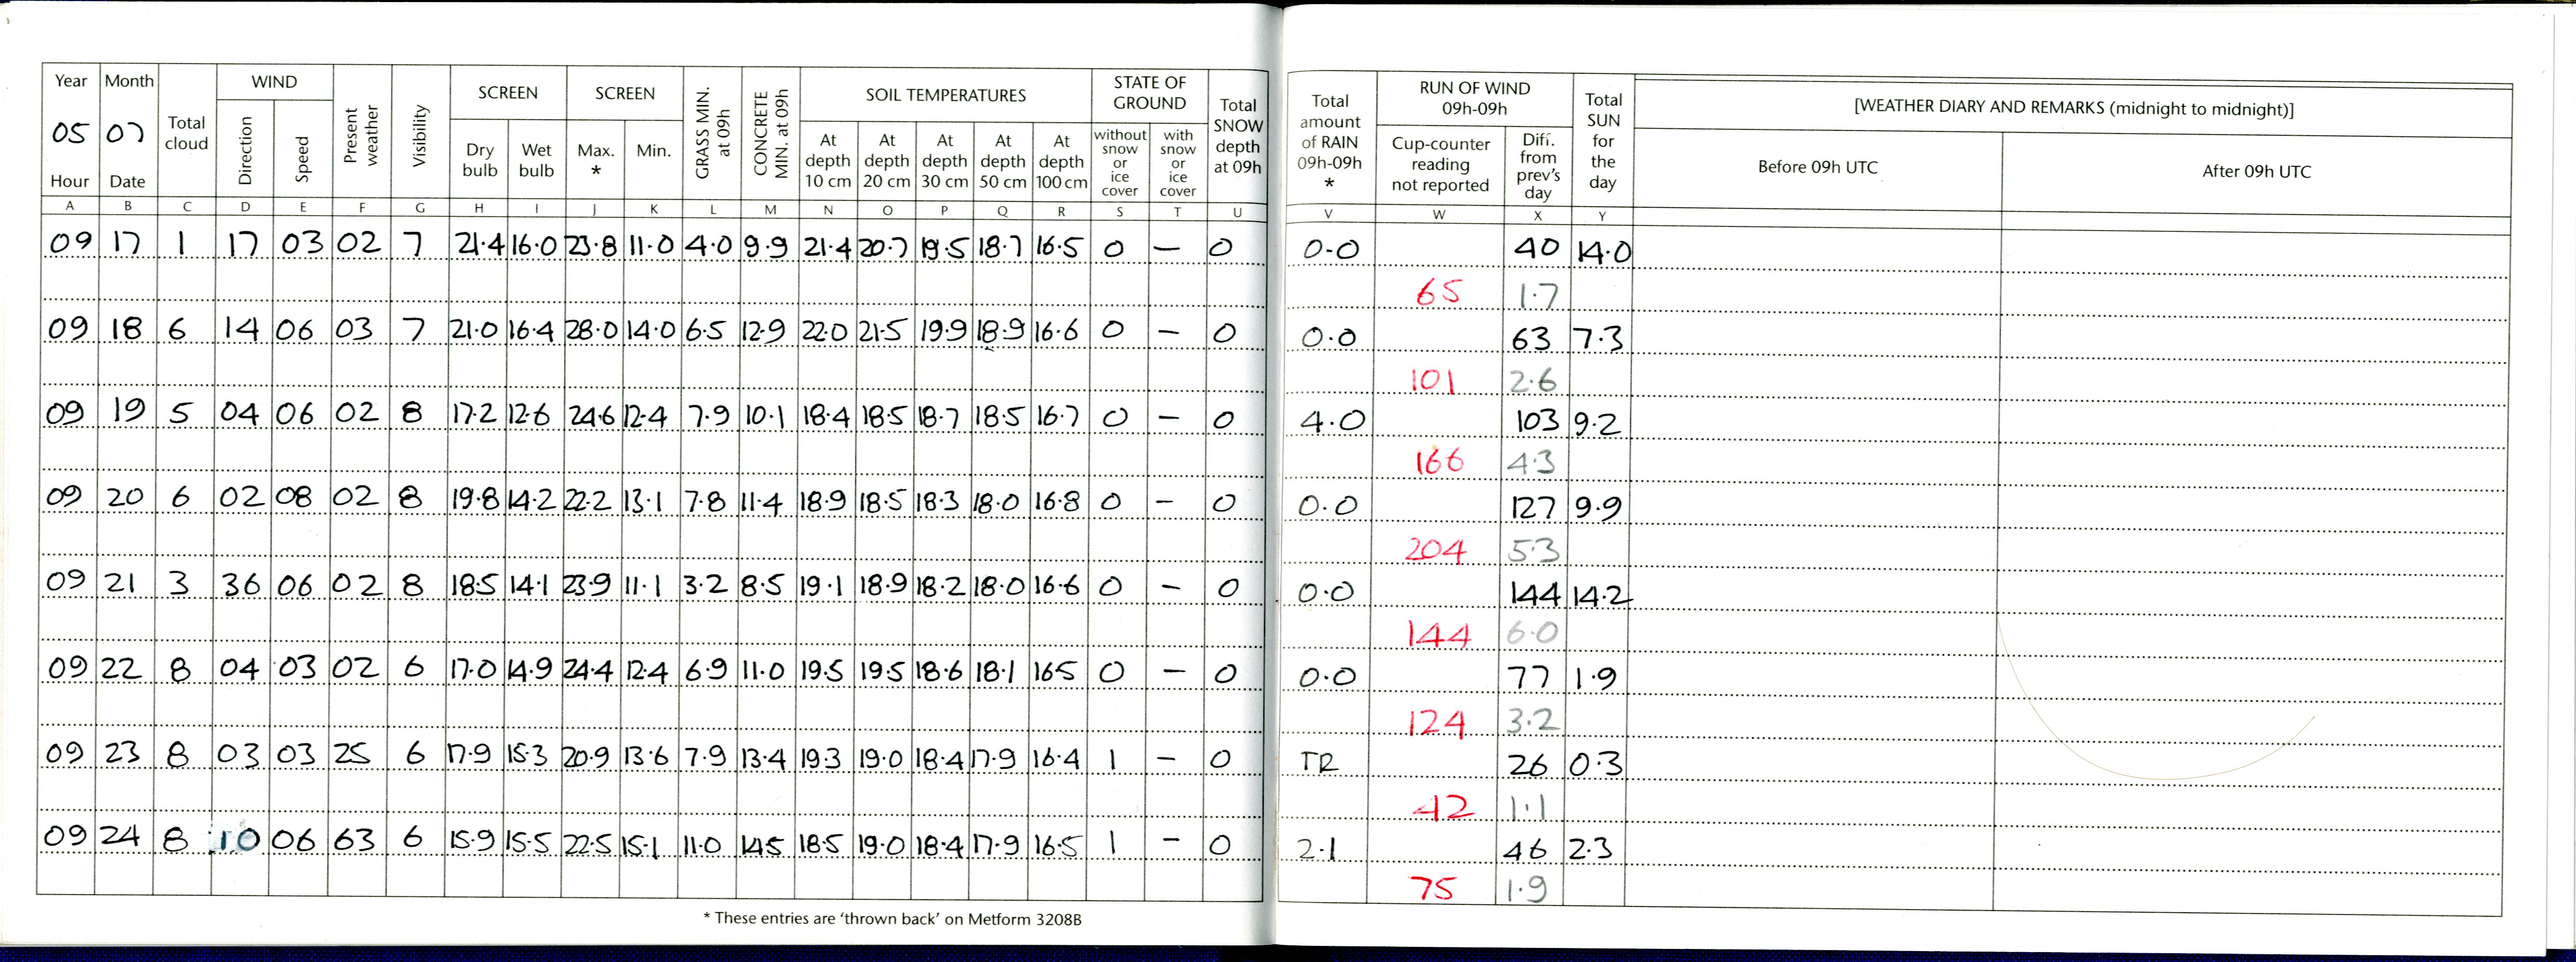 Year Month Total cloud WIND Present weather Visibility SCREEN SCREEN GRASS MIN. at 09h CONCRETE MIN. at 09h SOIL TEMPERATURES STATE OF GROUND Total SNOW depth at 09h Total amount of RAIN 09h-09h * RUN OF WIND 09h-09h Total SUN for the day [WEATHER DIARY AND REMARKS (midnight to midnight)]
05 07 Direction Speed Dry bulb Wet bulb Max. * Min. At depth 10 cm At depth 20 cm At depth 30 cm At depth 50 cm At depth 100 cm without snow or ice cover with snow or ice cover Cup-counter reading not reported Diff. from prev's day Before 09h UTC After 09h UTC
Hour Date
A B C D E F G H I J K L M N O P Q R S T U V W X Y
09 17 1 17 03 02 7 21.4 16.0 23.8 11.0 4.0 9.9 21.4 20.7 19.5 18.7 16.5 0 – 0 0.0 40 14.0
65 1.7
09 18 6 14 06 03 7 21.0 16.4 28.0 14.0 6.5 12.9 22.0 21.5 19.9 18.9 16.6 0 – 0 0.0 63 7.3
101 2.6
09 19 5 04 06 02 8 17.2 12.6 24.6 12.4 7.9 10.1 18.4 18.5 18.7 18.5 16.7 0 – 0 4.0 103 9.2
166 4.3
09 20 6 02 08 02 8 19.8 14.2 22.2 13.1 7.8 11.4 18.9 18.5 18.3 18.0 16.8 0 – 0 0.0 127 9.9
204 5.3
09 21 3 36 06 02 8 18.5 14.1 23.9 11.1 3.2 8.5 19.1 18.9 18.2 18.0 16.6 0 – 0 0.0 144 14.2
144 6.0
09 22 8 04 03 02 6 17.0 14.9 24.4 12.4 6.9 11.0 19.5 19.5 18.6 18.1 16.5 0 – 0 0.0 77 1.9
124 3.2
09 23 8 03 03 25 6 17.9 15.3 20.9 13.6 7.9 13.4 19.3 19.0 18.4 17.9 16.4 1 – 0 TR 26 0.3
42 1.1
09 24 8 10 06 63 6 15.9 15.5 22.5 15.1 11.0 14.5 18.5 19.0 18.4 17.9 16.5 1 – 0 2.1 46 2.3
75 1.9
* These entries are ‘thrown back’ on Metform 3208B